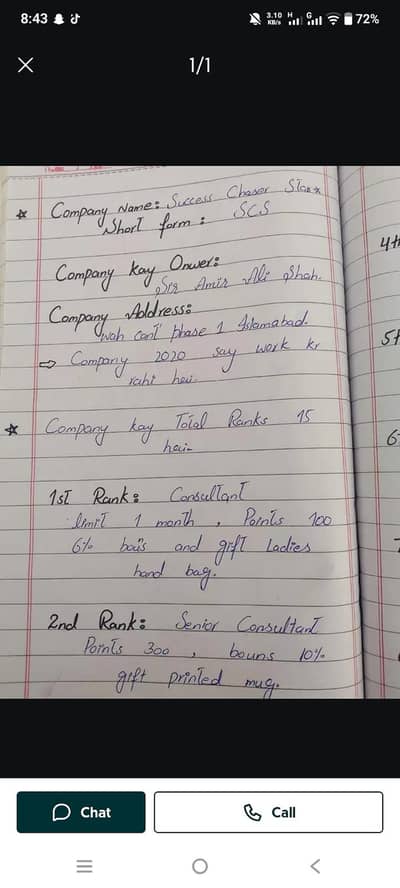 8:43
3.10 KB/s H G 72%
1/1
Company Name: Success Chaser
Short form: SCS
Company kay Onwer:
Sir Amir Ali Shah.
Company Address:
wah cant phase 1 Islamabad.
⇨ Company 2020 say work kr
rahi hai.
Company kay Total Ranks 15
hai-
1st Rank: Consultant
limit 1 month, Points 100
6% and gift Ladies
hand bag.
2nd Rank: Senior Consultant
Points 300, bouns 10%
gift printed mug.
4th
5th
6
Chat
Call